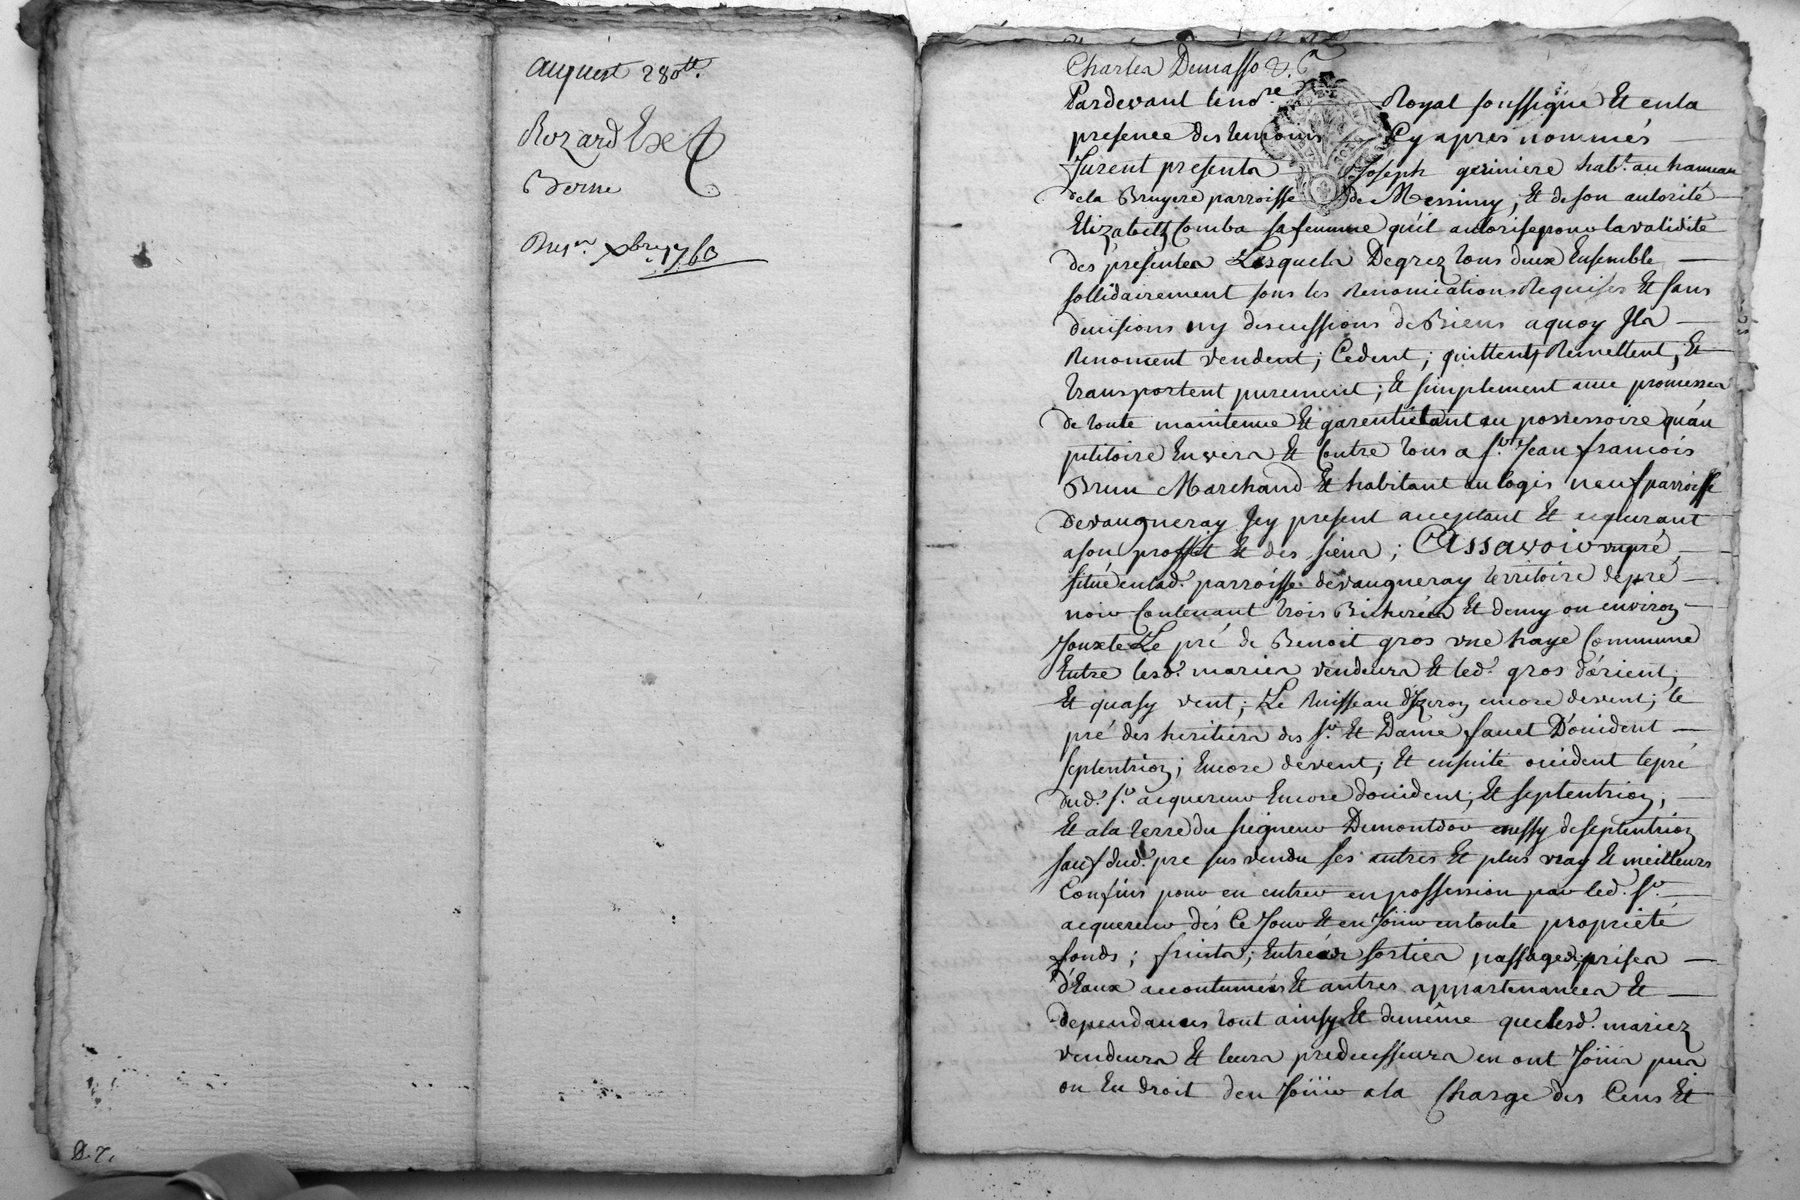 acquest 280tt.
Rozard Ex
Berne
Bre xbre 1763
D. 7.
Charles Demasso
Pardevant le no.re Royal soussigné Et en la
presence des temoins Cy apres nommés
furent presents Joseph geriniere hab.t au hameau
de la Bruyere parroisse de Messimy, Et de son autorité
Elizabeth Comba sa femme quil autorise pour la validité
des presentes Lesquels De grez tous deux Ensemble
sollidairement sous les Renonciations Requises Et sans
divisions ny discussions de Biens aquoy Ils
Renoncent vendent; Cedent; quittent, Remettent, Et
transportent purement; Et simplement avec promesses
de toute maintenue Et garentie tant au possessoire qu'au
petitoire Envers Et Contre tous a s.r Jean francois
Brun Marchand Et habitant au logis neuf parroisse
de vaugneray Icy present acceptant Et aquerant
a son proffit Et des siens; Assavoir un pré,
situé en lad. parroisse de vaugneray territoire de pré
noir Contenant trois Bicherées Et demy ou environ
Jouxte Le pré de Benoit gros une haye Commune
Entre lesd. mariés vendeurs Et led. gros d'orient,
Et quasy vent; Le Ruisseau d'Izeron encore de vent; le
pré des heritiers des s.r Et Dame favet D'occident
septentrion; Encore de vent; Et ensuite occident le pré
dud. s.r acquereur Encore d'occident; Et septentrion;
Et a la terre du seigneur Demontdor aussy de septentrion
sauf dud. pre sus vendu ses autres Et plus vray Et meilleurs
Confins pour en entrer en possession par led. s.r
acquereur dès Ce Jour Et en Joüir en toute propriété
fonds; fruits; Entrées sorties passages; prises
d'Eaux accoutumées Et autres appartenances Et
dependances tout ainsy Et de même que lesd. mariez
vendeurs Et leurs predecesseurs en ont Joüis pu
ou Eu droit d'en Joüir a la Charge des Cens Et